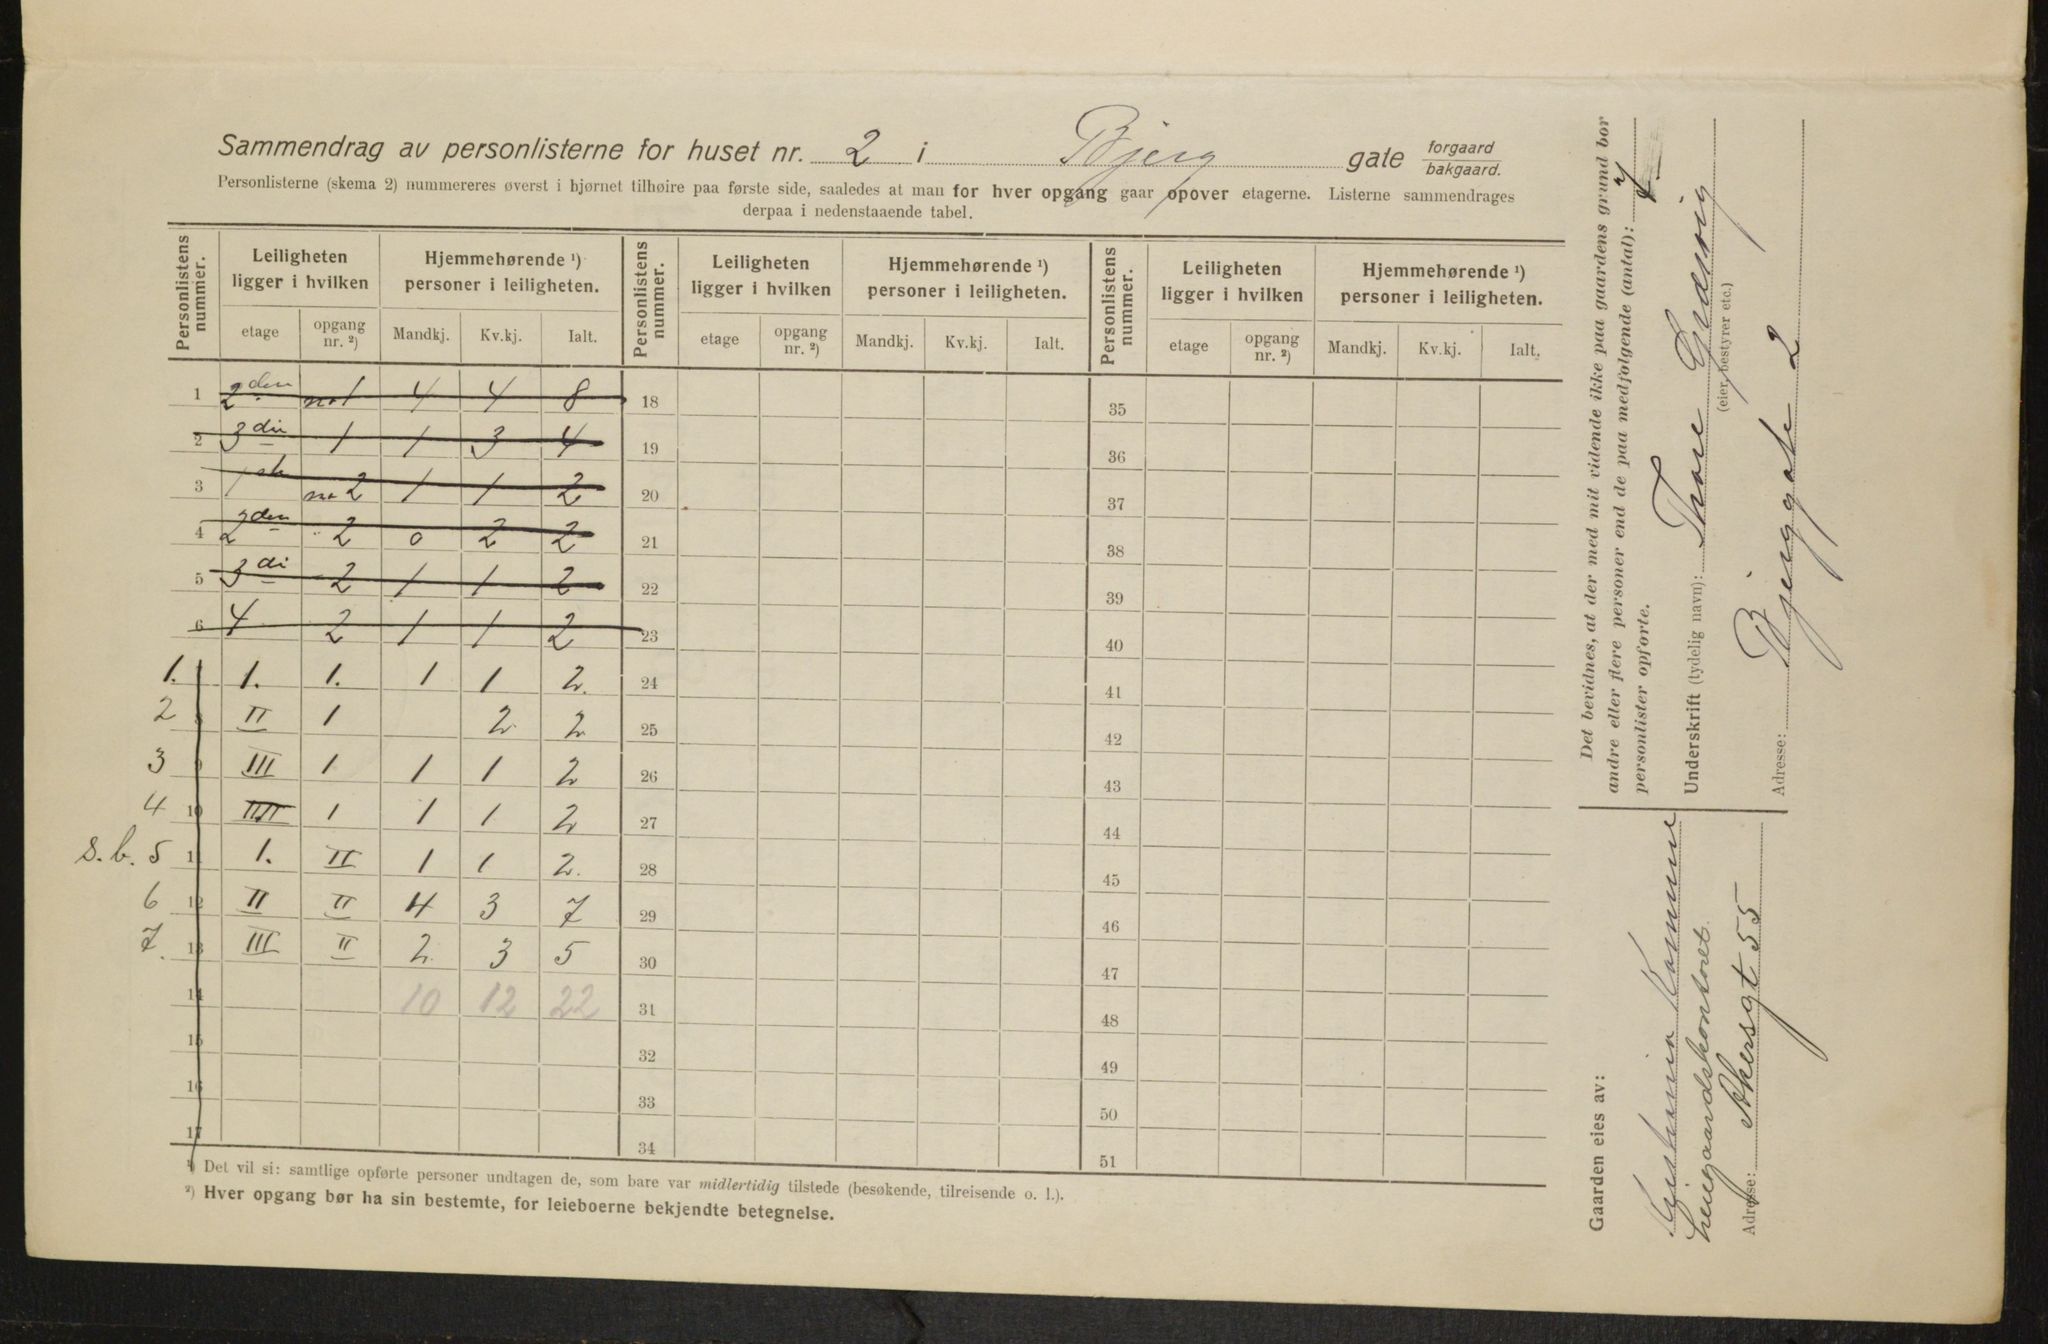 Sammendrag av personlisterne for huset nr. 2 i Bjerg gate forgaard bakgaard.
Personlisterne (skema 2) nummereres øverst i hjørnet tilhøire paa første side, saaledes at man for hver opgang gaar opover etagerne. Listerne sammendrages
derpaa i nedenstaaende tabel.
Personlistens nummer. Leiligheten ligger i hvilken Hjemmehørende ¹) personer i leiligheten. Personlistens nummer. Leiligheten ligger i hvilken Hjemmehørende ¹) personer i leiligheten. Personlistens nummer. Leiligheten ligger i hvilken Hjemmehørende ¹) personer i leiligheten.
etage opgang nr. ²) Mandkj. Kv.kj. Ialt. etage opgang nr. ²) Mandkj. Kv.kj. Ialt. etage opgang nr. ²) Mandkj. Kv.kj. Ialt.
1 2den no 1 4 4 8 18 35
2 3die 1 1 3 4 19 36
3 1ste no 2 1 1 2 20 37
4 2den 2 0 2 2 21 38
5 3di 2 1 1 2 22 39
6 4 2 1 1 2 23 40
1. 1. 1. 1 1 2. 24 41
2 8 II 1 2 2 25 42
3 9 III 1 1 1 2 26 43
4 10 IIII 1 1 1 2 27 44
s. b. 5 11 1. II 1 1 2. 28 45
6 12 II II 4 3 7 29 46
7. 13 III II 2 3 5 30 47
14 10 12 22 31 48
15 32 49
16 33 50
17 34 51
¹) Det vil si: samtlige opførte personer undtagen de, som bare var midlertidig tilstede (besøkende, tilreisende o. l.).
²) Hver opgang bør ha sin bestemte, for leieboerne bekjendte betegnelse.
Det bevidnes, at der med mit vidende ikke paa gaardens grund bor
andre eller flere personer end de paa medfølgende (antal): 7
personlister opførte.
Underskrift (tydelig navn): Thore
(eier, bestyrer etc.)
Adresse: Bjerggate 2
Gaarden eies av:
Kristiania Kommune
Leiegaardskontoret.
Adresse: Akersgt 55